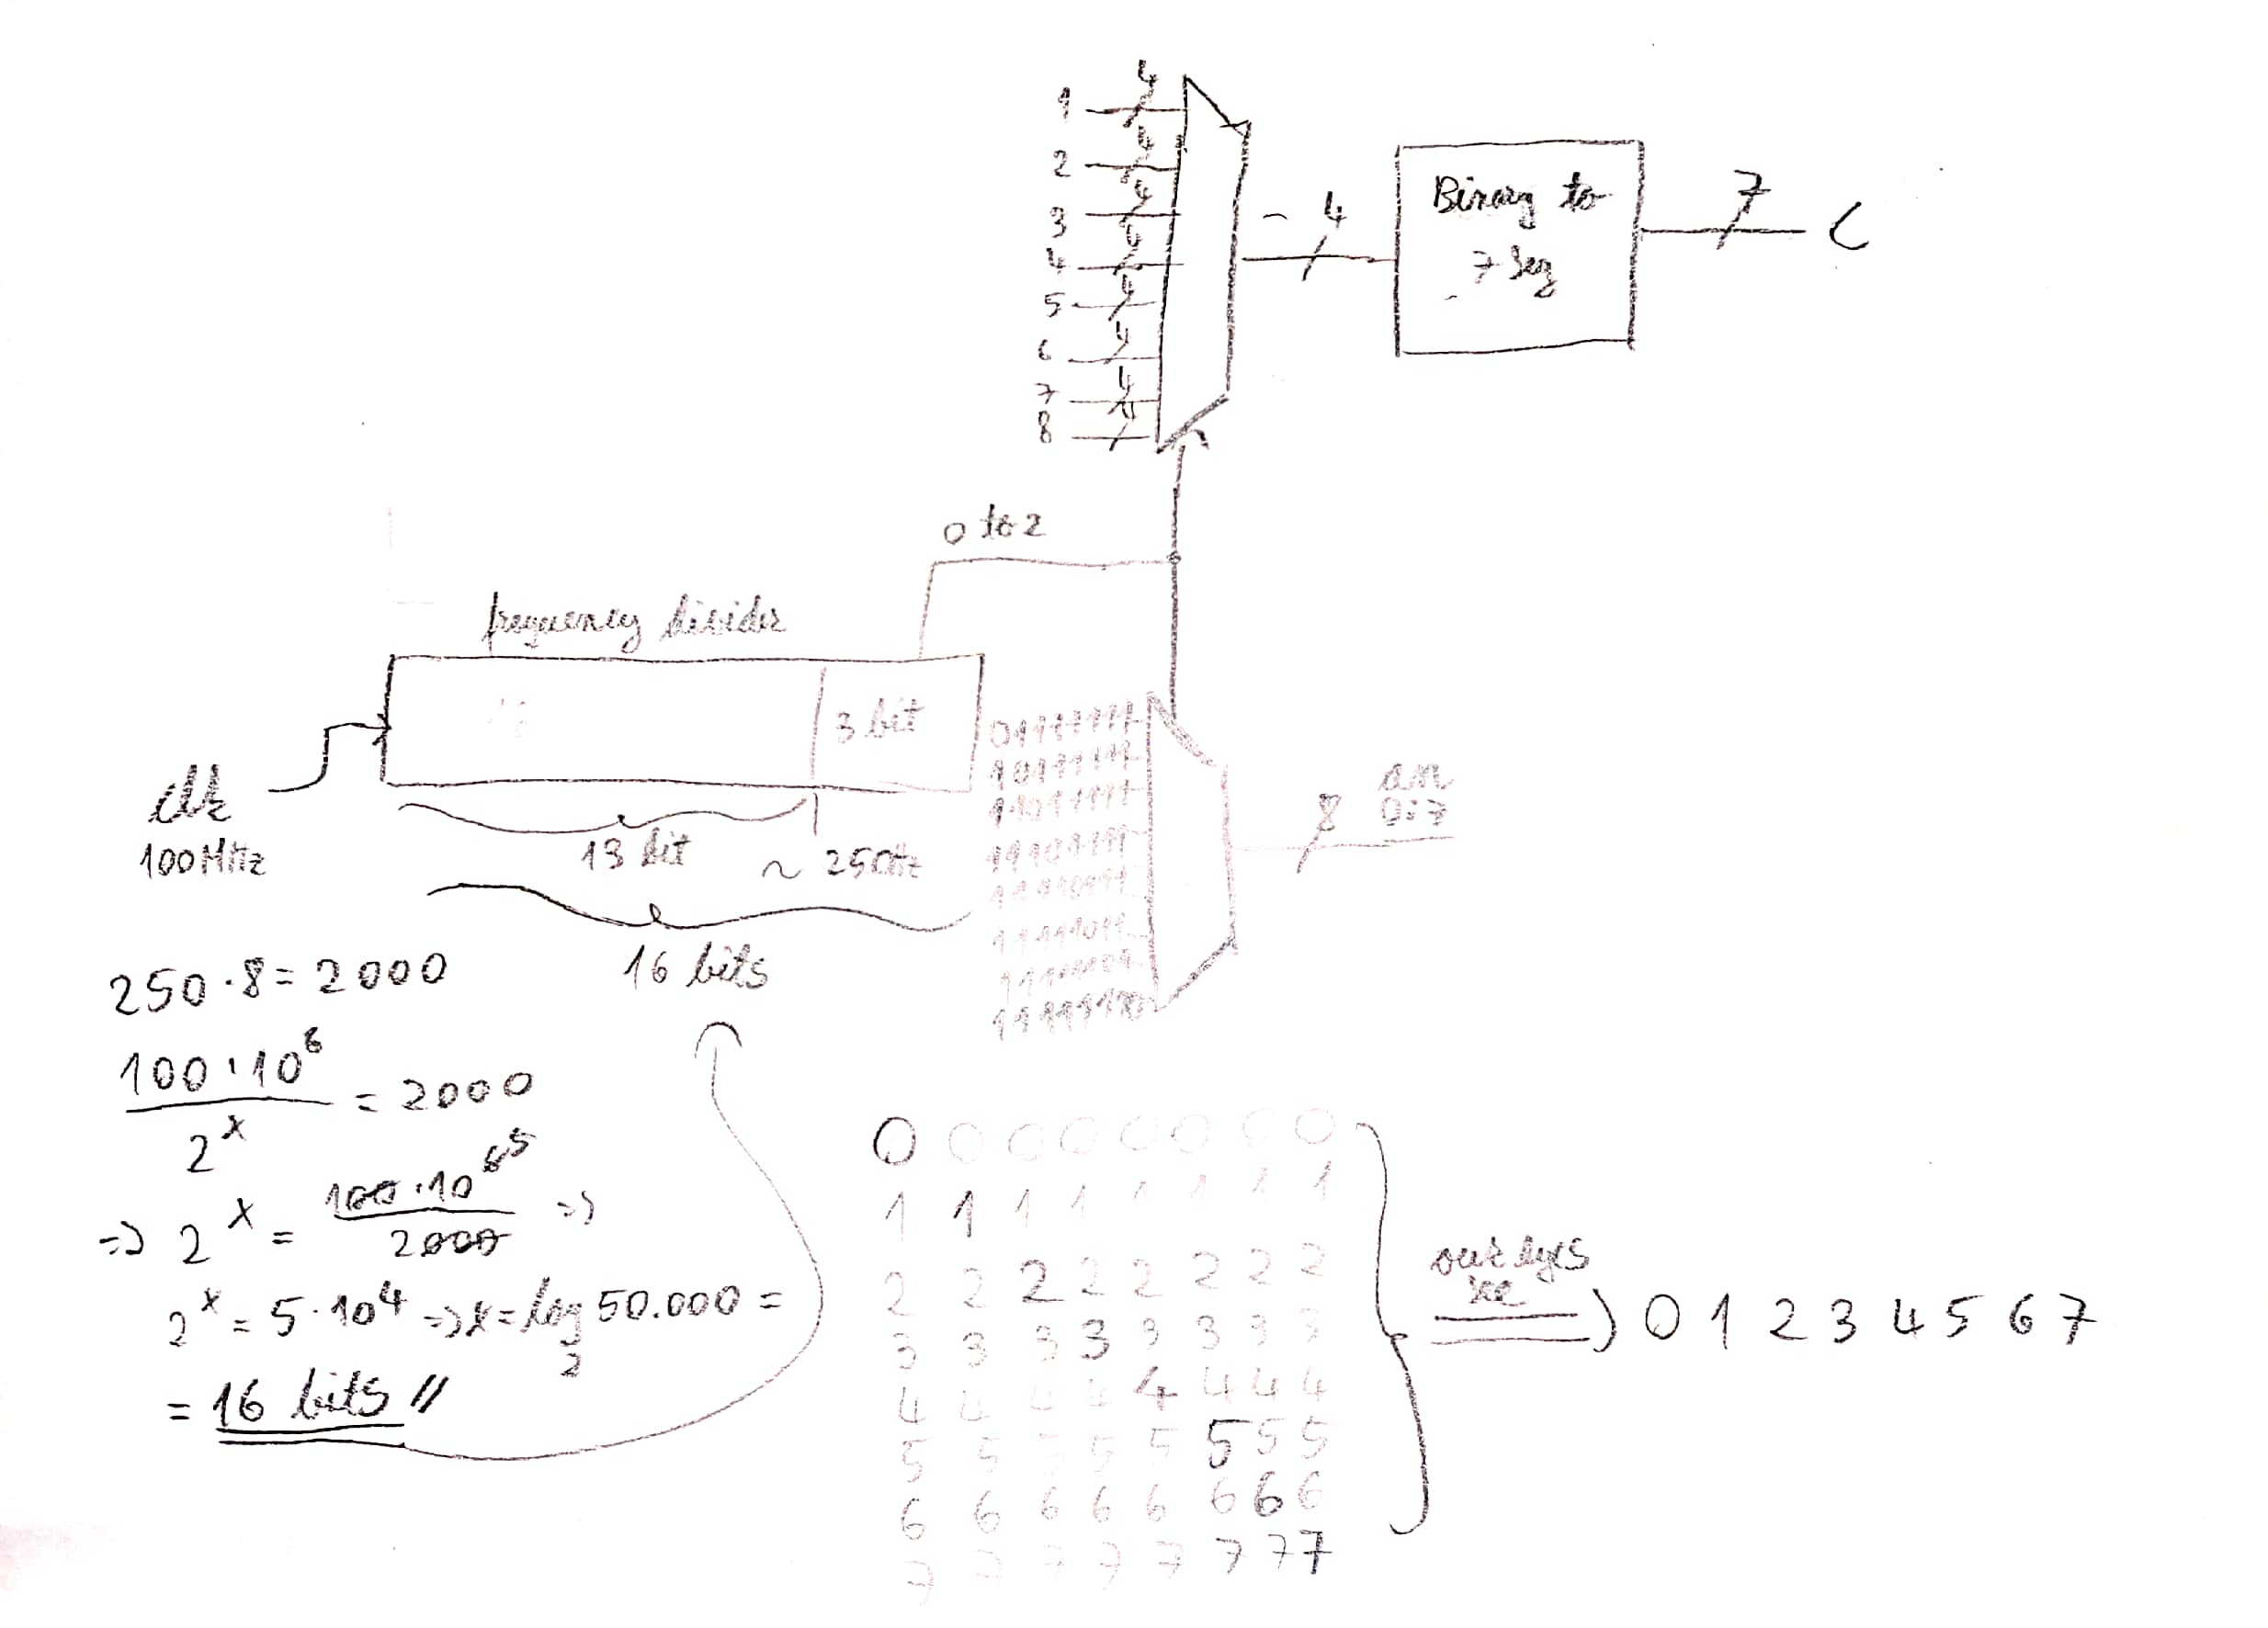 1 4
2 4
3 4
4 4
5 4
6 4
7 4
8 4
4
Binary to
7 Seg
7 C
0 to 2
frequency divider
3 bit
clk
100MHz
13 bit
~ 250Hz
16 bits
01111111
10111111
11011111
11101111
11110111
11111011
11111101
11111110
8 an
0:7
250 · 8 = 2000
100 · 10^6 / 2^x = 2000
=> 2^x = 100 · 10^6 5 / 2000 =>
2^x = 5 · 10^4 => x = log2 50.000 =
= 16 bits //
0 0 0 0 0 0 0 0
1 1 1 1 1 1 1 1
2 2 2 2 2 2 2 2
3 3 3 3 3 3 3 3
4 4 4 4 4 4 4 4
5 5 5 5 5 5 5 5
6 6 6 6 6 6 6 6
7 7 7 7 7 7 7 7
our eyes
see
=> 0 1 2 3 4 5 6 7